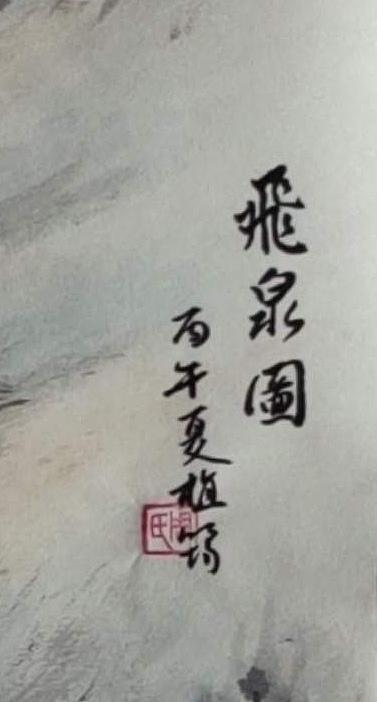 飛泉圖
丙午夏植筠